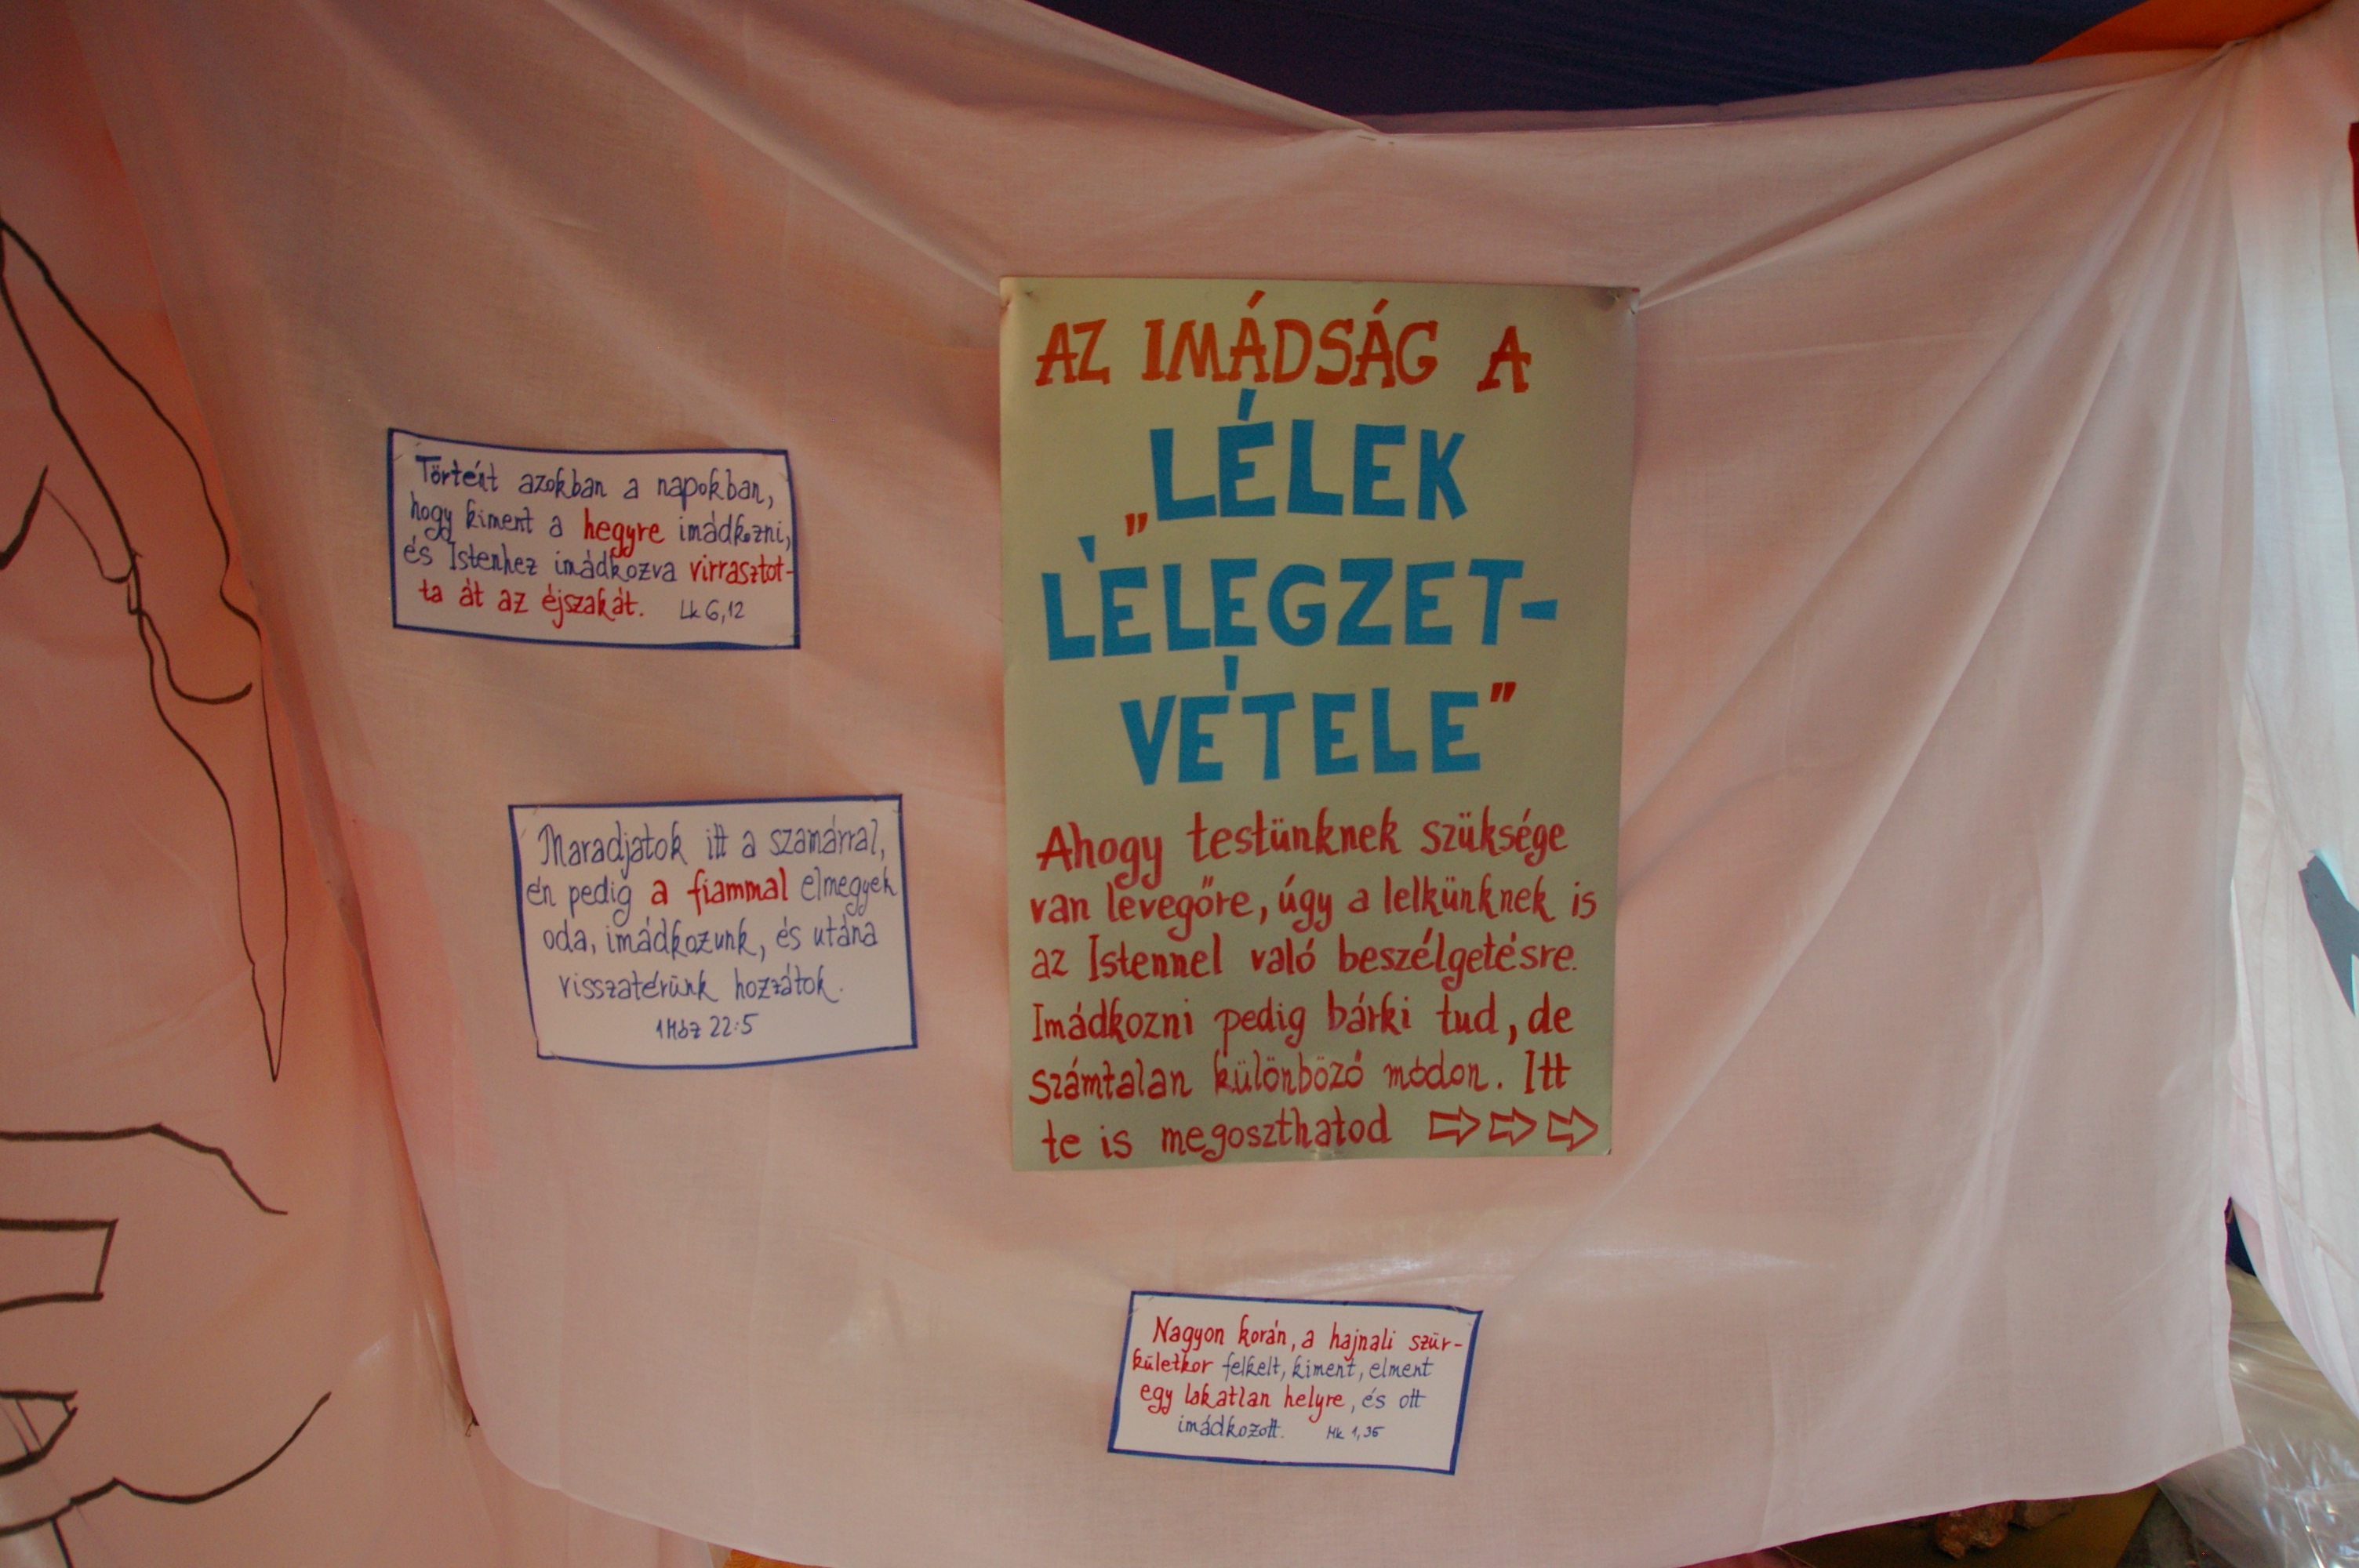 Történt azokban a napokban,
hogy kiment a hegyre imádkozni,
és Istenhez imádkozva virrasztot-
ta át az éjszakát. Lk 6,12
Maradjatok itt a szamárral,
én pedig a fiammal elmegyek
oda, imádkozunk, és utána
visszatérünk hozzátok.
1Móz 22:5
AZ IMÁDSÁG A
„LÉLEK
LÉLEGZET-
VÉTELE”
Ahogy testünknek szüksége
van levegőre, úgy a lelkünknek is
az Istennel való beszélgetésre.
Imádkozni pedig bárki tud, de
számtalan különböző módon. Itt
te is megoszthatod ⇨⇨⇨
Nagyon korán, a hajnali szür-
kületkor felkelt, kiment, elment
egy lakatlan helyre, és ott
imádkozott. Mk 1,35